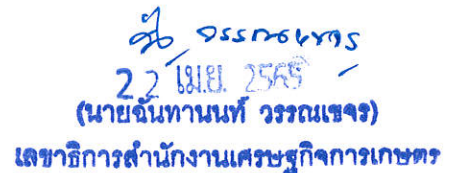 วรรณเขจร
22 เม.ย. 2565
(นายฉันทานนท์ วรรณเขจร)
เลขาธิการสำนักงานเศรษฐกิจการเกษตร